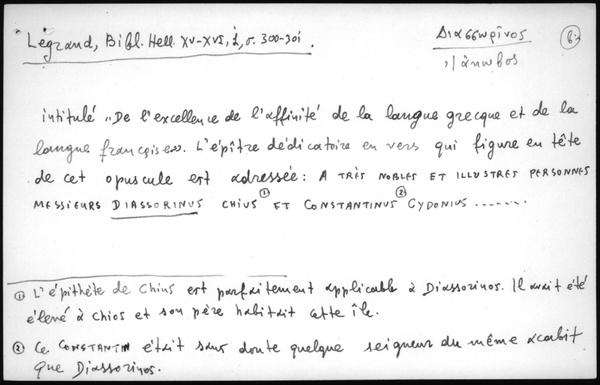 Légrand, Bibl. Hell. XV-XVI, i, σ. 300-301.
Διασσωρῖνος
Ἰάκωβος
intitulé „De l'excellence de l'affinité de la langue grecque et de la
langue française». L'épître dédicatoire en vers qui figure en tête
de cet opuscule est adressée: A TRÈS NOBLES ET ILLUSTRES PERSONNES
MESSIEURS DIASSORINUS CHIUS ① ET CONSTANTINUS ② CYDONIUS .......
① L'épithète de Chius est parfaitement applicable à Diassorinos. Il avait été
élevé à Chios et son père habitait cette île.
② Ce CONSTANTIN était sans doute quelque seigneur du même acabit
que Diassorinos.